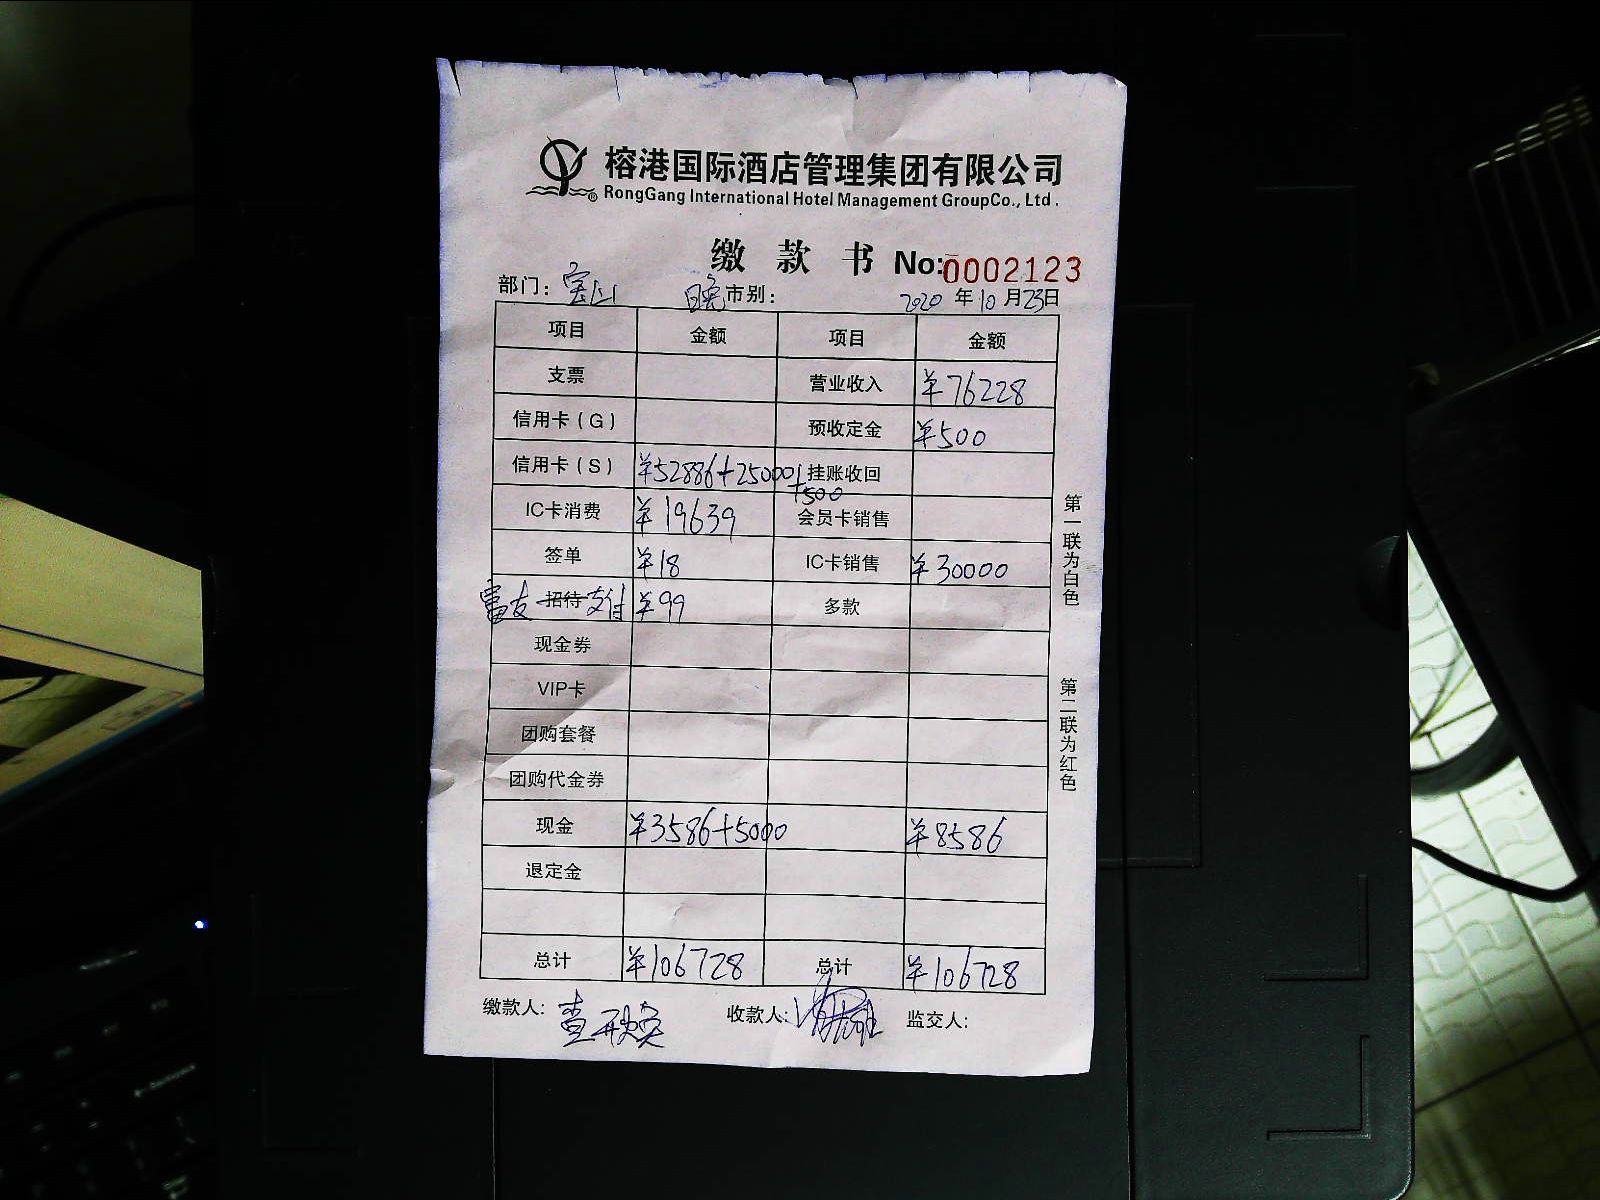 榕港国际酒店管理集团有限公司
RongGang International Hotel Management GroupCo., Ltd.
缴 款 书 No:0002123
部门: 宝山 市别: 2020 年 10 月 23 日
项目 金额 项目 金额
支票 营业收入 ¥76228
信用卡(G) 预收定金 ¥500
信用卡(S) ¥52886+25000+500 挂账收回
IC卡消费 ¥19639 会员卡销售
签单 ¥18 IC卡销售 ¥30000
招待 支付 ¥99 多款
现金券
VIP卡
团购套餐
团购代金券
现金 ¥3586+5000 ¥8586
退定金
总计 ¥106728 总计 ¥106728
缴款人: 收款人: 监交人:
第一联为白色
第二联为红色